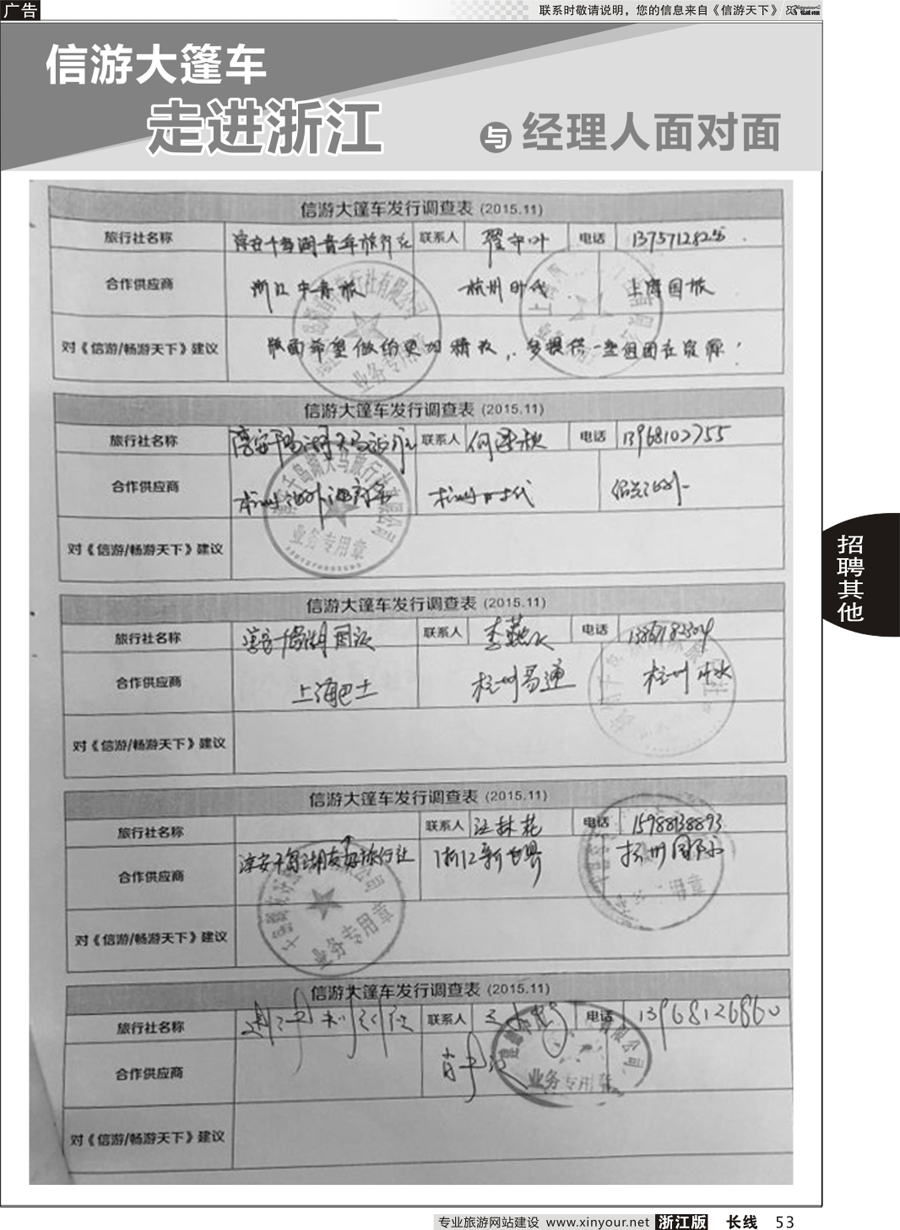 广告
联系时敬请说明，您的信息来自《信游天下》
信游大篷车
走进浙江 与 经理人面对面
信游大篷车发行调查表 (2015.11)
旅行社名称 淳安千岛湖青年旅行社 联系人 电话
合作供应商 浙江中青旅 杭州时代 上海国旅
对《信游/畅游天下》建议 版面希望做的更加精致，多提供一些组团社资源！
业务专用章
信游大篷车发行调查表 (2015.11)
旅行社名称 淳安千岛湖天马旅行社 联系人 电话 13968102755
合作供应商 杭州 杭州时代 绍兴
对《信游/畅游天下》建议
业务专用章
信游大篷车发行调查表 (2015.11)
旅行社名称 淳安千岛湖国旅 联系人 李燕 电话
合作供应商 上海巴士 杭州易通 杭州
对《信游/畅游天下》建议
信游大篷车发行调查表 (2015.11)
旅行社名称 联系人 汪林花 电话 15988138893
合作供应商 淳安千岛湖友好旅行社 浙江新世界 杭州
对《信游/畅游天下》建议
业务专用章
信游大篷车发行调查表 (2015.11)
旅行社名称 联系人 电话 13968126860
合作供应商
业务专用章
对《信游/畅游天下》建议
招聘其他
专业旅游网站建设 www.xinyour.net 浙江版 长线 53